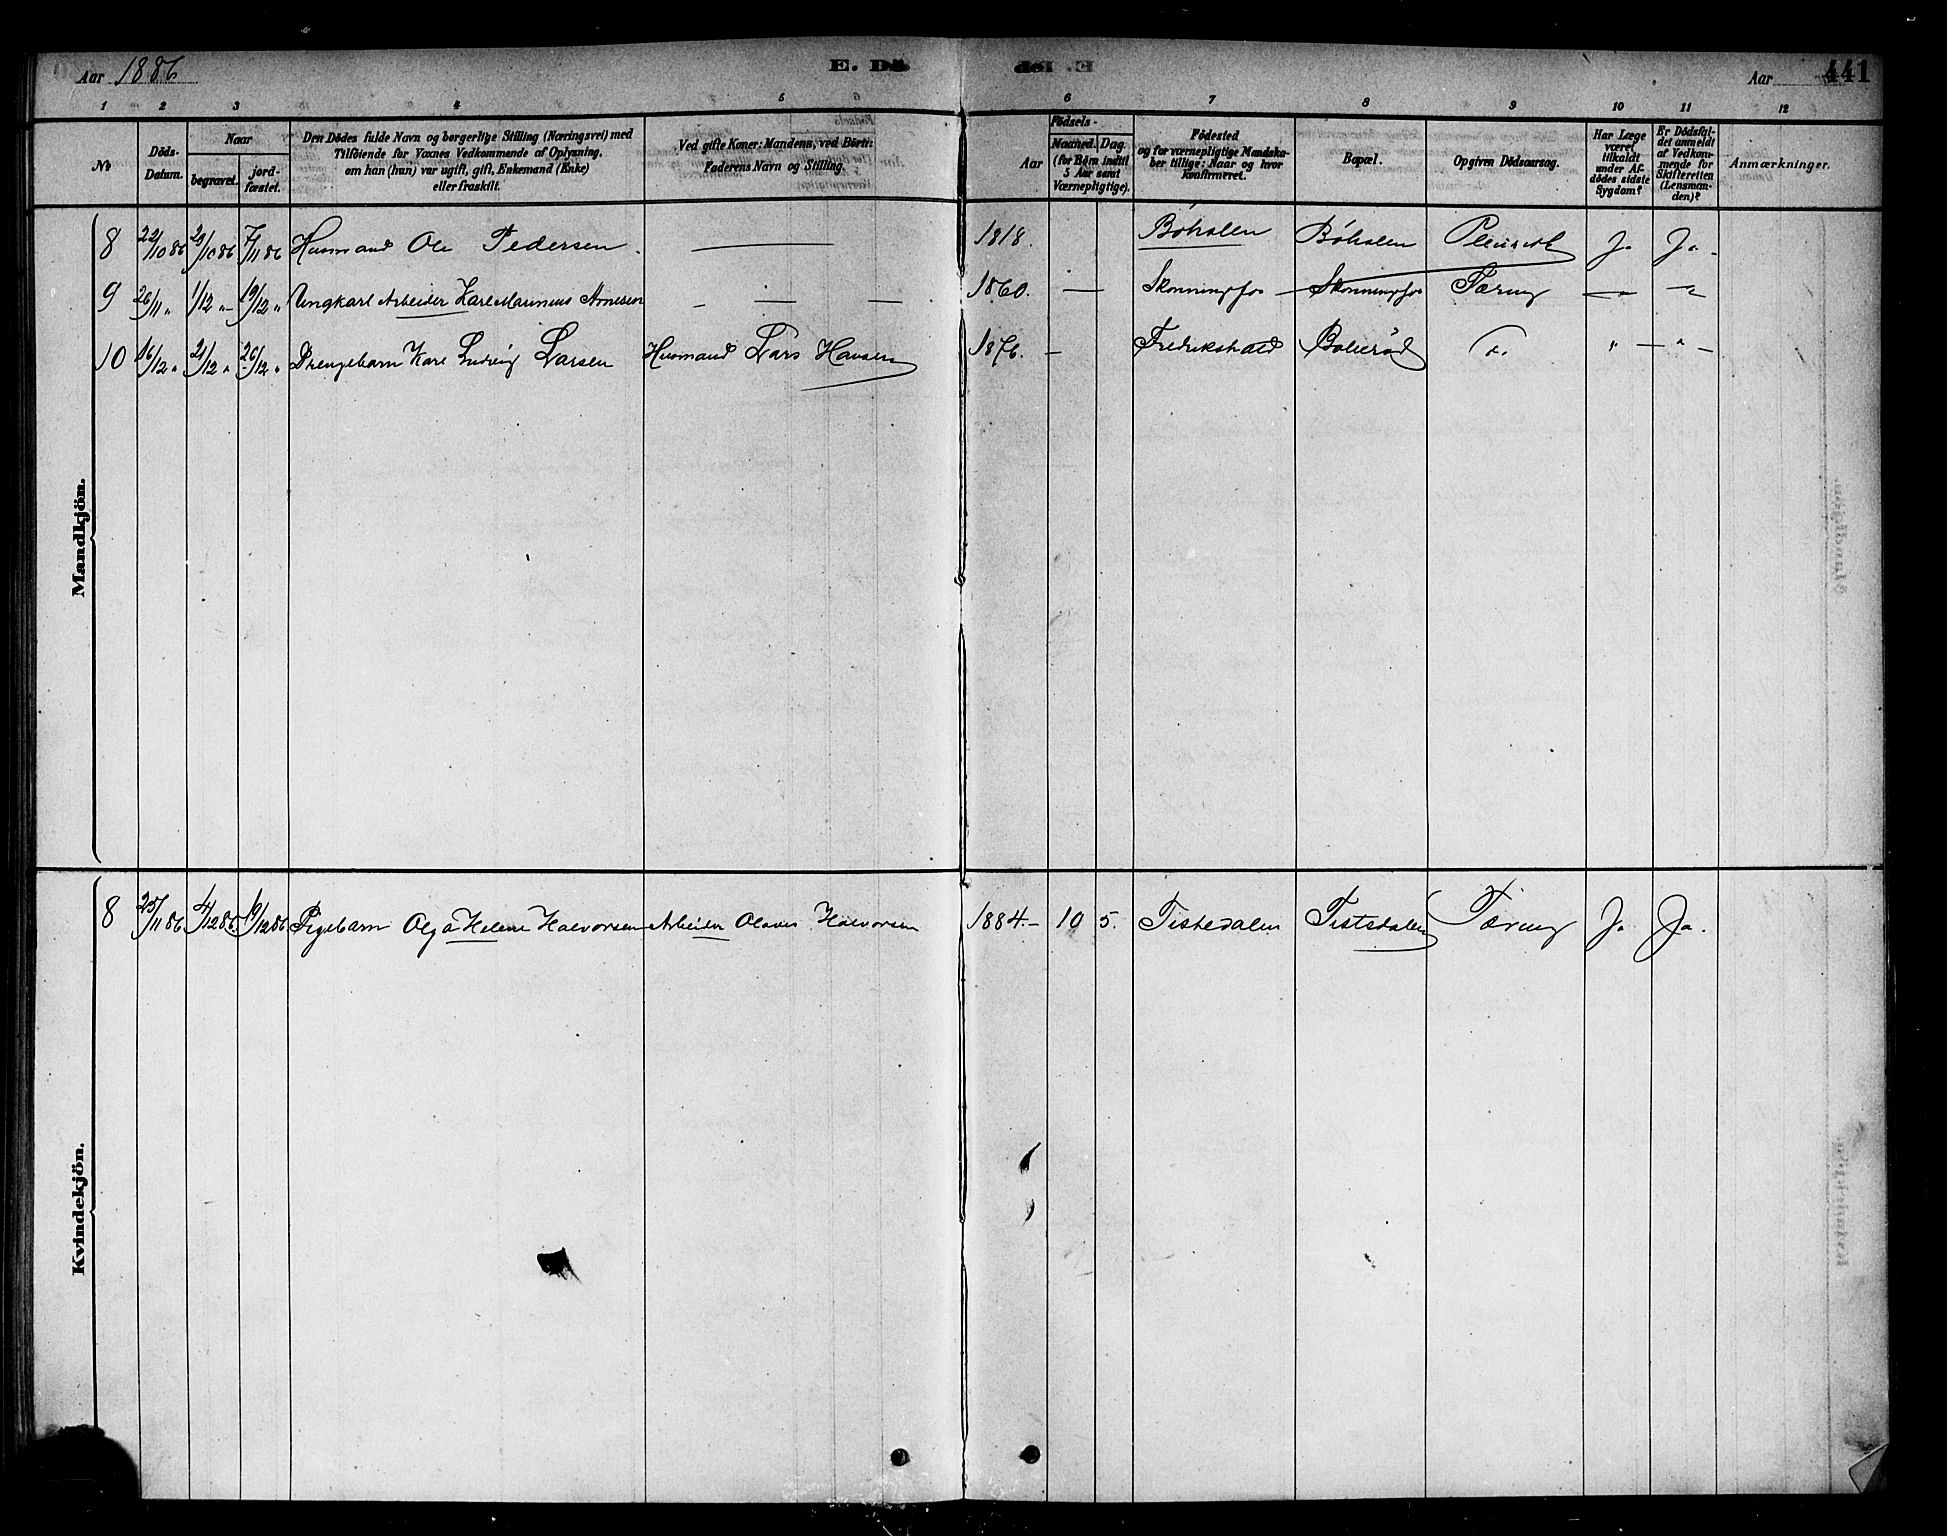 Aar 1886
E. Dö
441
Aar
1 2 3 4 5 6 7 8 9 10 11 12
No
Döds-Datum.
Naar
begravet.
jord-fæstet.
Den Dödes fulde Navn og borgerlige Stilling (Næringsvei) med
Tilföiende for Voxnes Vedkommende af Oplysning,
om han (hun) var ugift, gift, Enkemand (Enke)
eller fraskilt.
Ved gifte Koner: Mandens, ved Börn:
Faderens Navn og Stilling.
Födsels-
Aar
Maaned. Dag.
(for Börn indtil
5 Aar samt
Værnepligtige).
Födested
og for værnepligtige Mandska-
ber tillige: Naar og hvor
konfirmeret.
Bopæl.
Opgiven Dödsaarsag.
Har Læge
været
tilkaldt
under Af-
dödes sidste
Sygdom?
Er Dödsfal-
det anmeldt
af Vedkom-
mende for
Skifteretten
(Lensman-
den)?
Anmærkninger.
Mandkjön.
8 22/10 86 29/10 86 7/11 86 Husmand Ole Pedersen. — 1818. Böhalen Böhalen Ja Ja
9 26/11 " 1/12 " 19/12 " Ungkarl Arbeider Karl Marinius Arnesen — — — 1860. — Skonningfos — Skonningfos Tæring — " — "
10 16/12 " 21/12 " 26/12 " Drengebarn Karl Ludvig Larsen Husmand Lars Hansen 1876. — Fredrikshald " — " —
Kvindekjön.
8 25/11 86 4/12 86. 19/12 86 Pigebarn Olga Helene Halvorsen Arbeider Olaves Halvorsen 1884.— 10 5. Tistedalen Tistedalen Tæring Ja Ja.